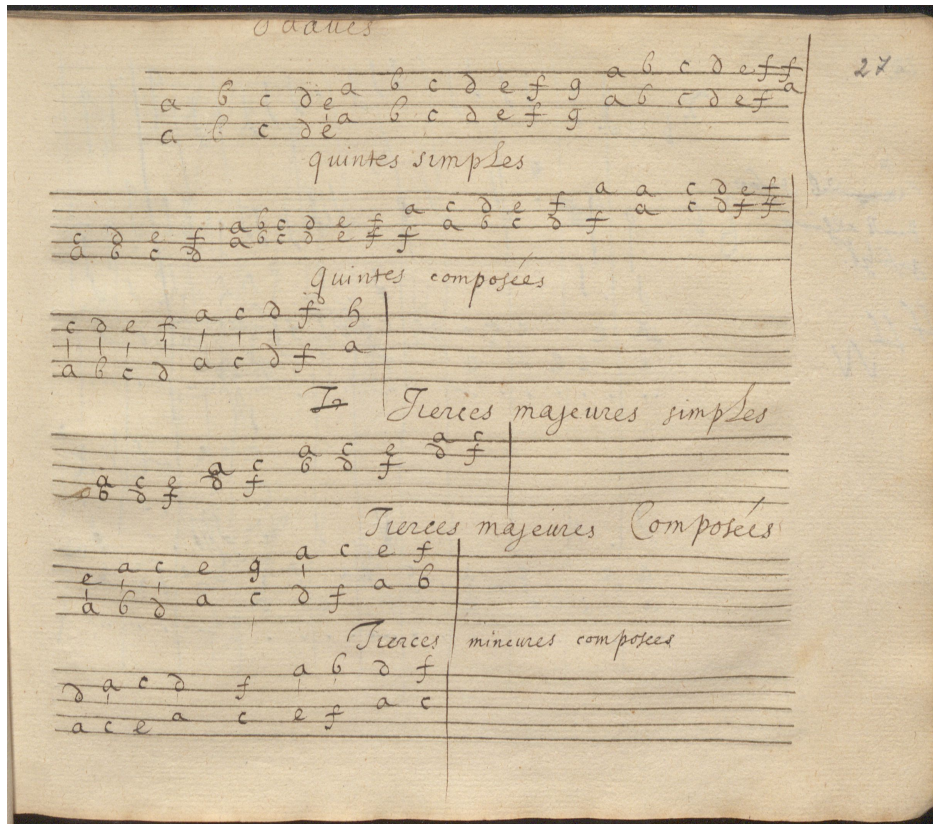 Octaves
27
a b c d e a b c d e f g a b c d e f f
a b c d e a b c d e f g a b c d e f a
quintes simples
c d e f a b c d e f a c d e f a a c d e f
a b c d a b c d e f f a b c d f a c d f f
quintes composées
c d e f a c d f h
a b c d a c d f a
Tierces majeures simples
a c e a c a c e a c
b d f d f b d f d f
Tierces majeures Composées
e a c e g a c e f
a b d a c d f a b
Tierces mineures composées
d a c d f a b d f
a c e a c e f a c